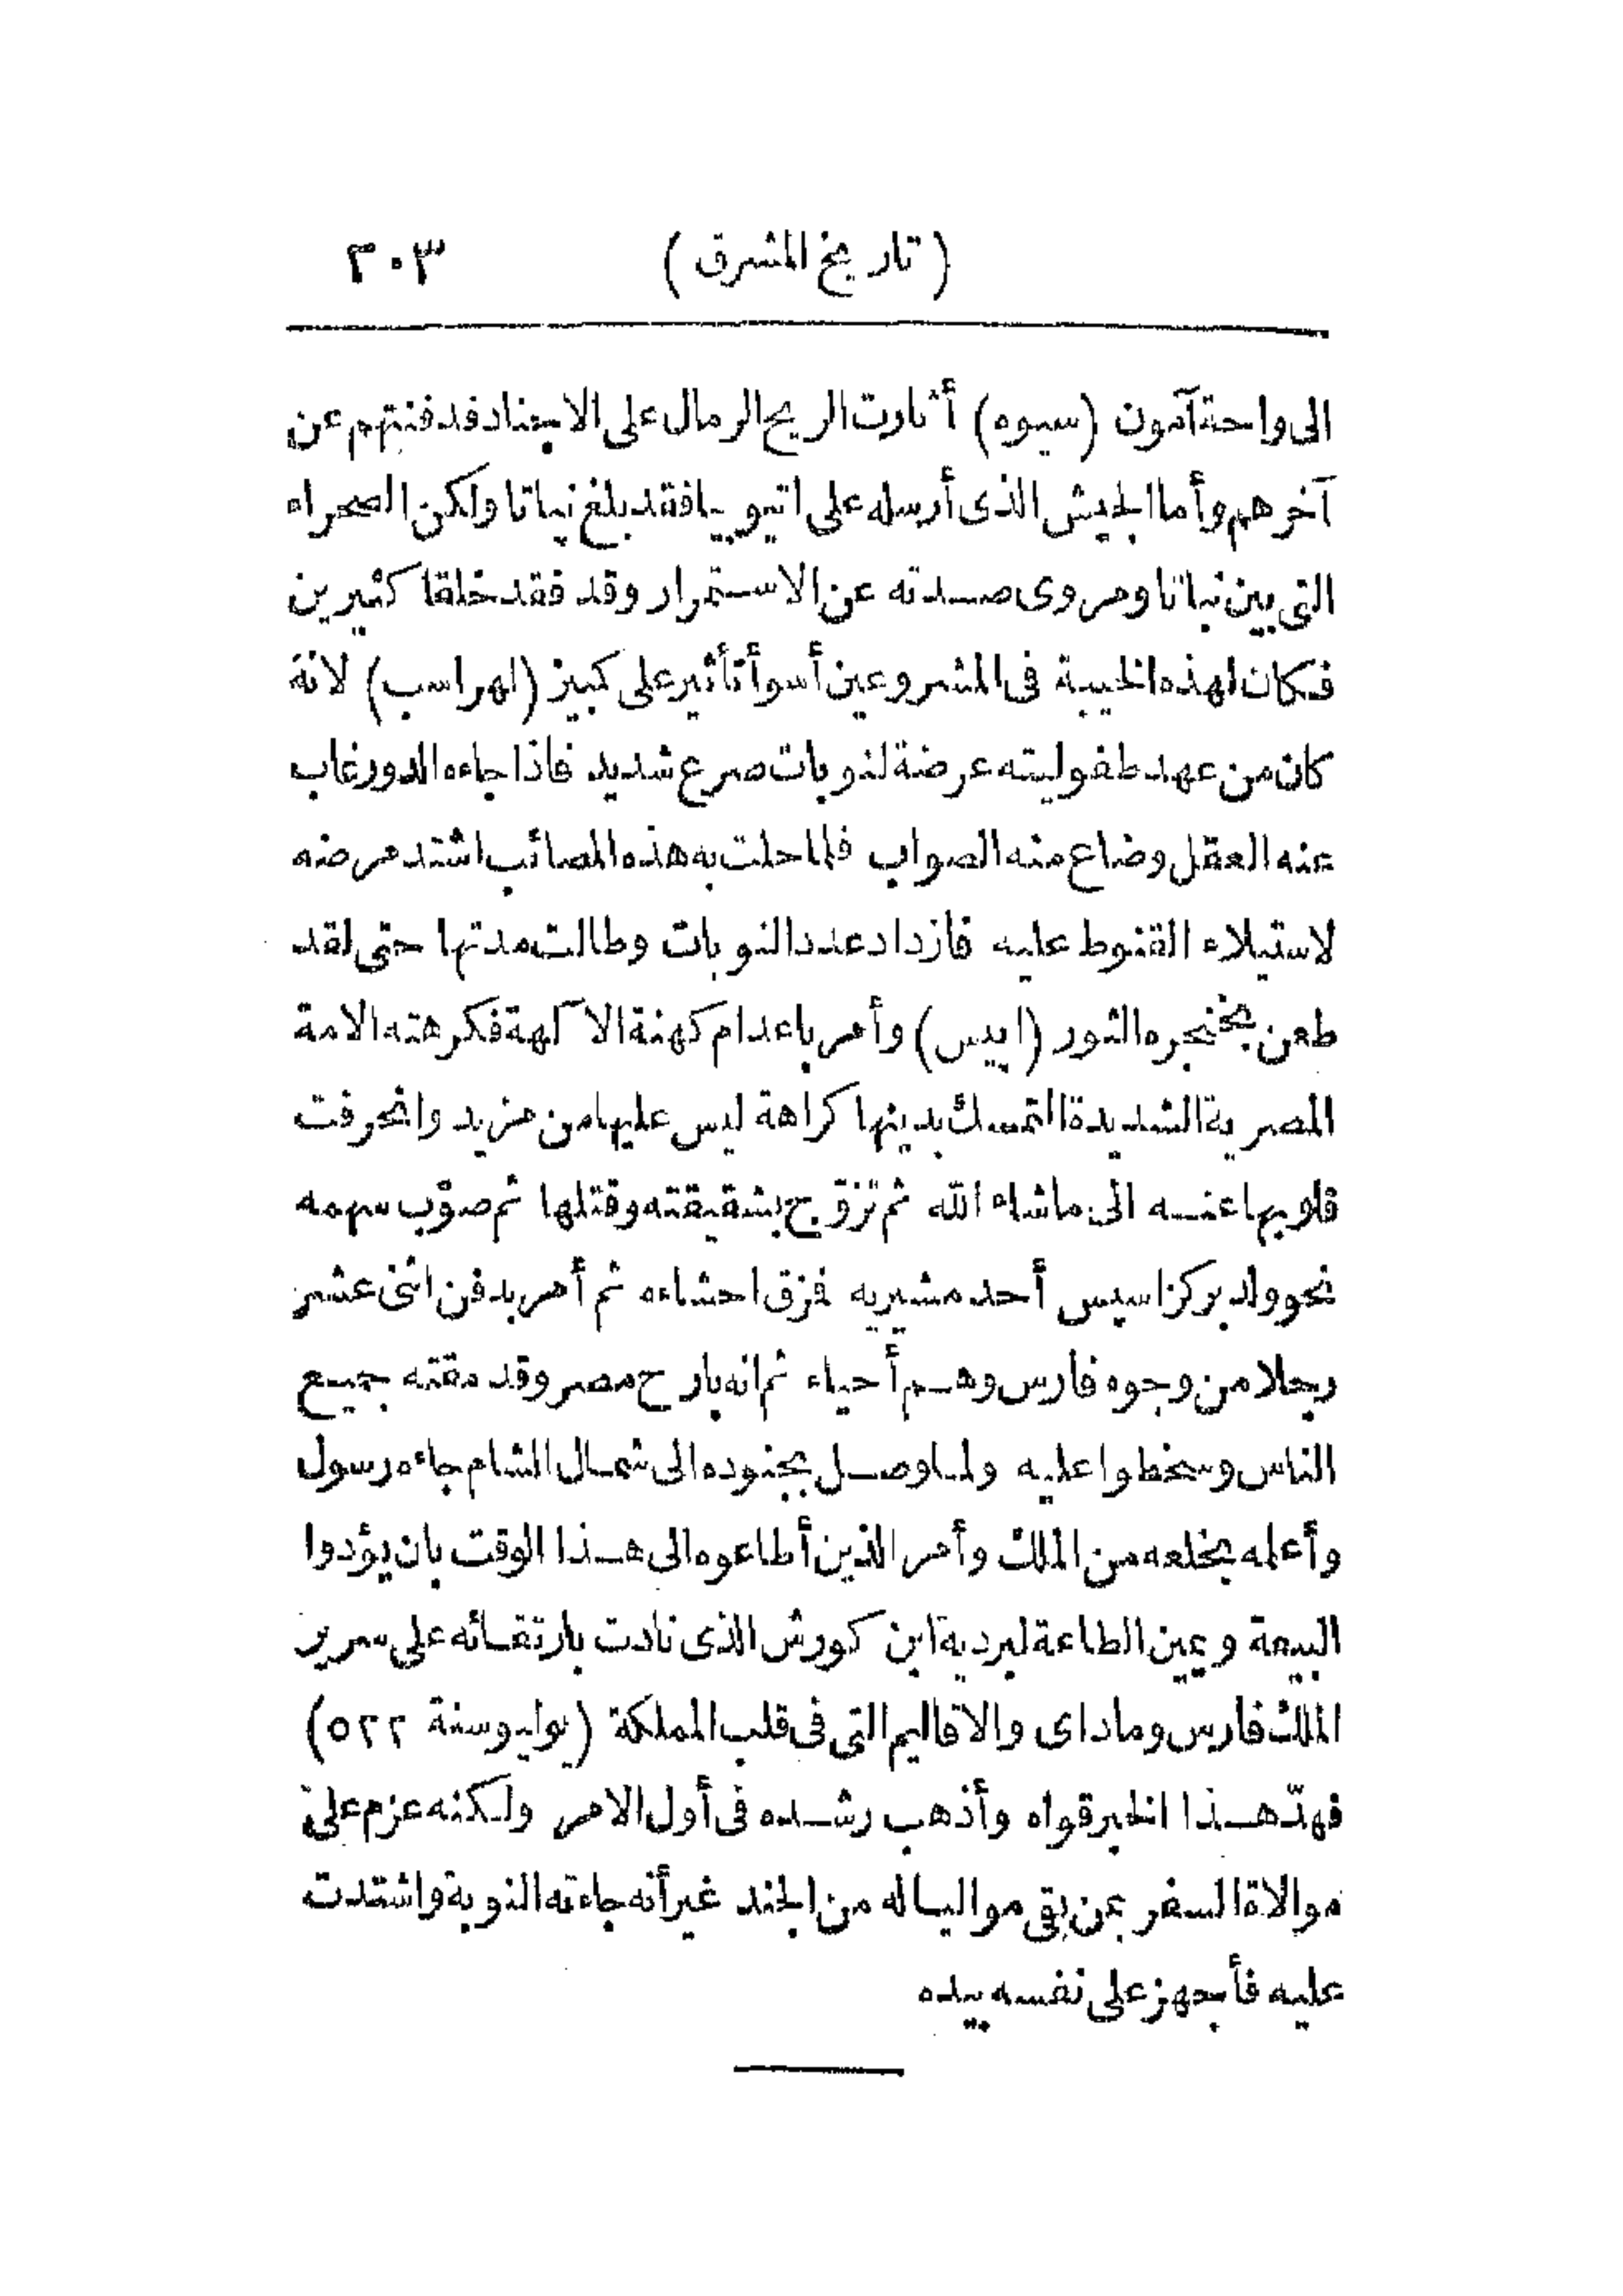 (تاريخ المشرق) ٣٠٣
الى واحة آمون (سيوه) أثارت الريح الرمال على الاجناد فدفنتهم عن
آخرهم وأما الجيش الذى أرسله على اتيوبيا فقد بلغ نپاتا ولكن الصحراء
التى بين نپاتا ومروى صدته عن الاستمرار وقد فقد خلقا كثيرين
فكان لهذه الخيبة فى المشروعين أسوأ تأثير على كبيز (لهراسب) لانه
كان من عهد طفوليته عرضة لنوبات صرع شديد فاذا جاءه الدور غاب
عنه العقل وضاع منه الصواب فلما حلت به هذه المصائب اشتد مرضه
لاستيلاء القنوط عليه فازداد عدد النوبات وطالت مدتها حتى لقد
طعن بخنجره الثور (ابيس) وأمر باعدام كهنة الآلهة فكرهته الامة
المصرية الشديدة التمسك بدينها كراهة ليس عليها من مزيد وانحرفت
قلوبها عنه الى ماشاء الله ثم تزوّج بشقيقته وقتلها ثم صوّب سهمه
نحو ولد بركزاسيس أحد مشيريه فزق احشاءه ثم أمر بدفن اثنى عشر
رجلا من وجوه فارس وهم أحياء ثم انه بارح مصر وقد مقته جميع
الناس وسخطوا عليه ولما وصل بجنوده الى شمال الشام جاءه رسول
وأعلمه بخلعه من الملك وأمر الذين أطاعوه الى هذا الوقت بان يؤدوا
البيعة ويمين الطاعة لبردية ابن كورش الذى نادت بارتقائه على سرير
الملك فارس وماداى والاقاليم التى فى قلب المملكة (يوليو سنة ٥٢٢)
فهدّ هذا الخبر قواه وأذهب رشده فى أول الامر ولكنه عزم على
موالاة السفر بمن بقى مواليا له من الجند غير أنه جاءته النوبة واشتدت
عليه فأجهز على نفسه بيده